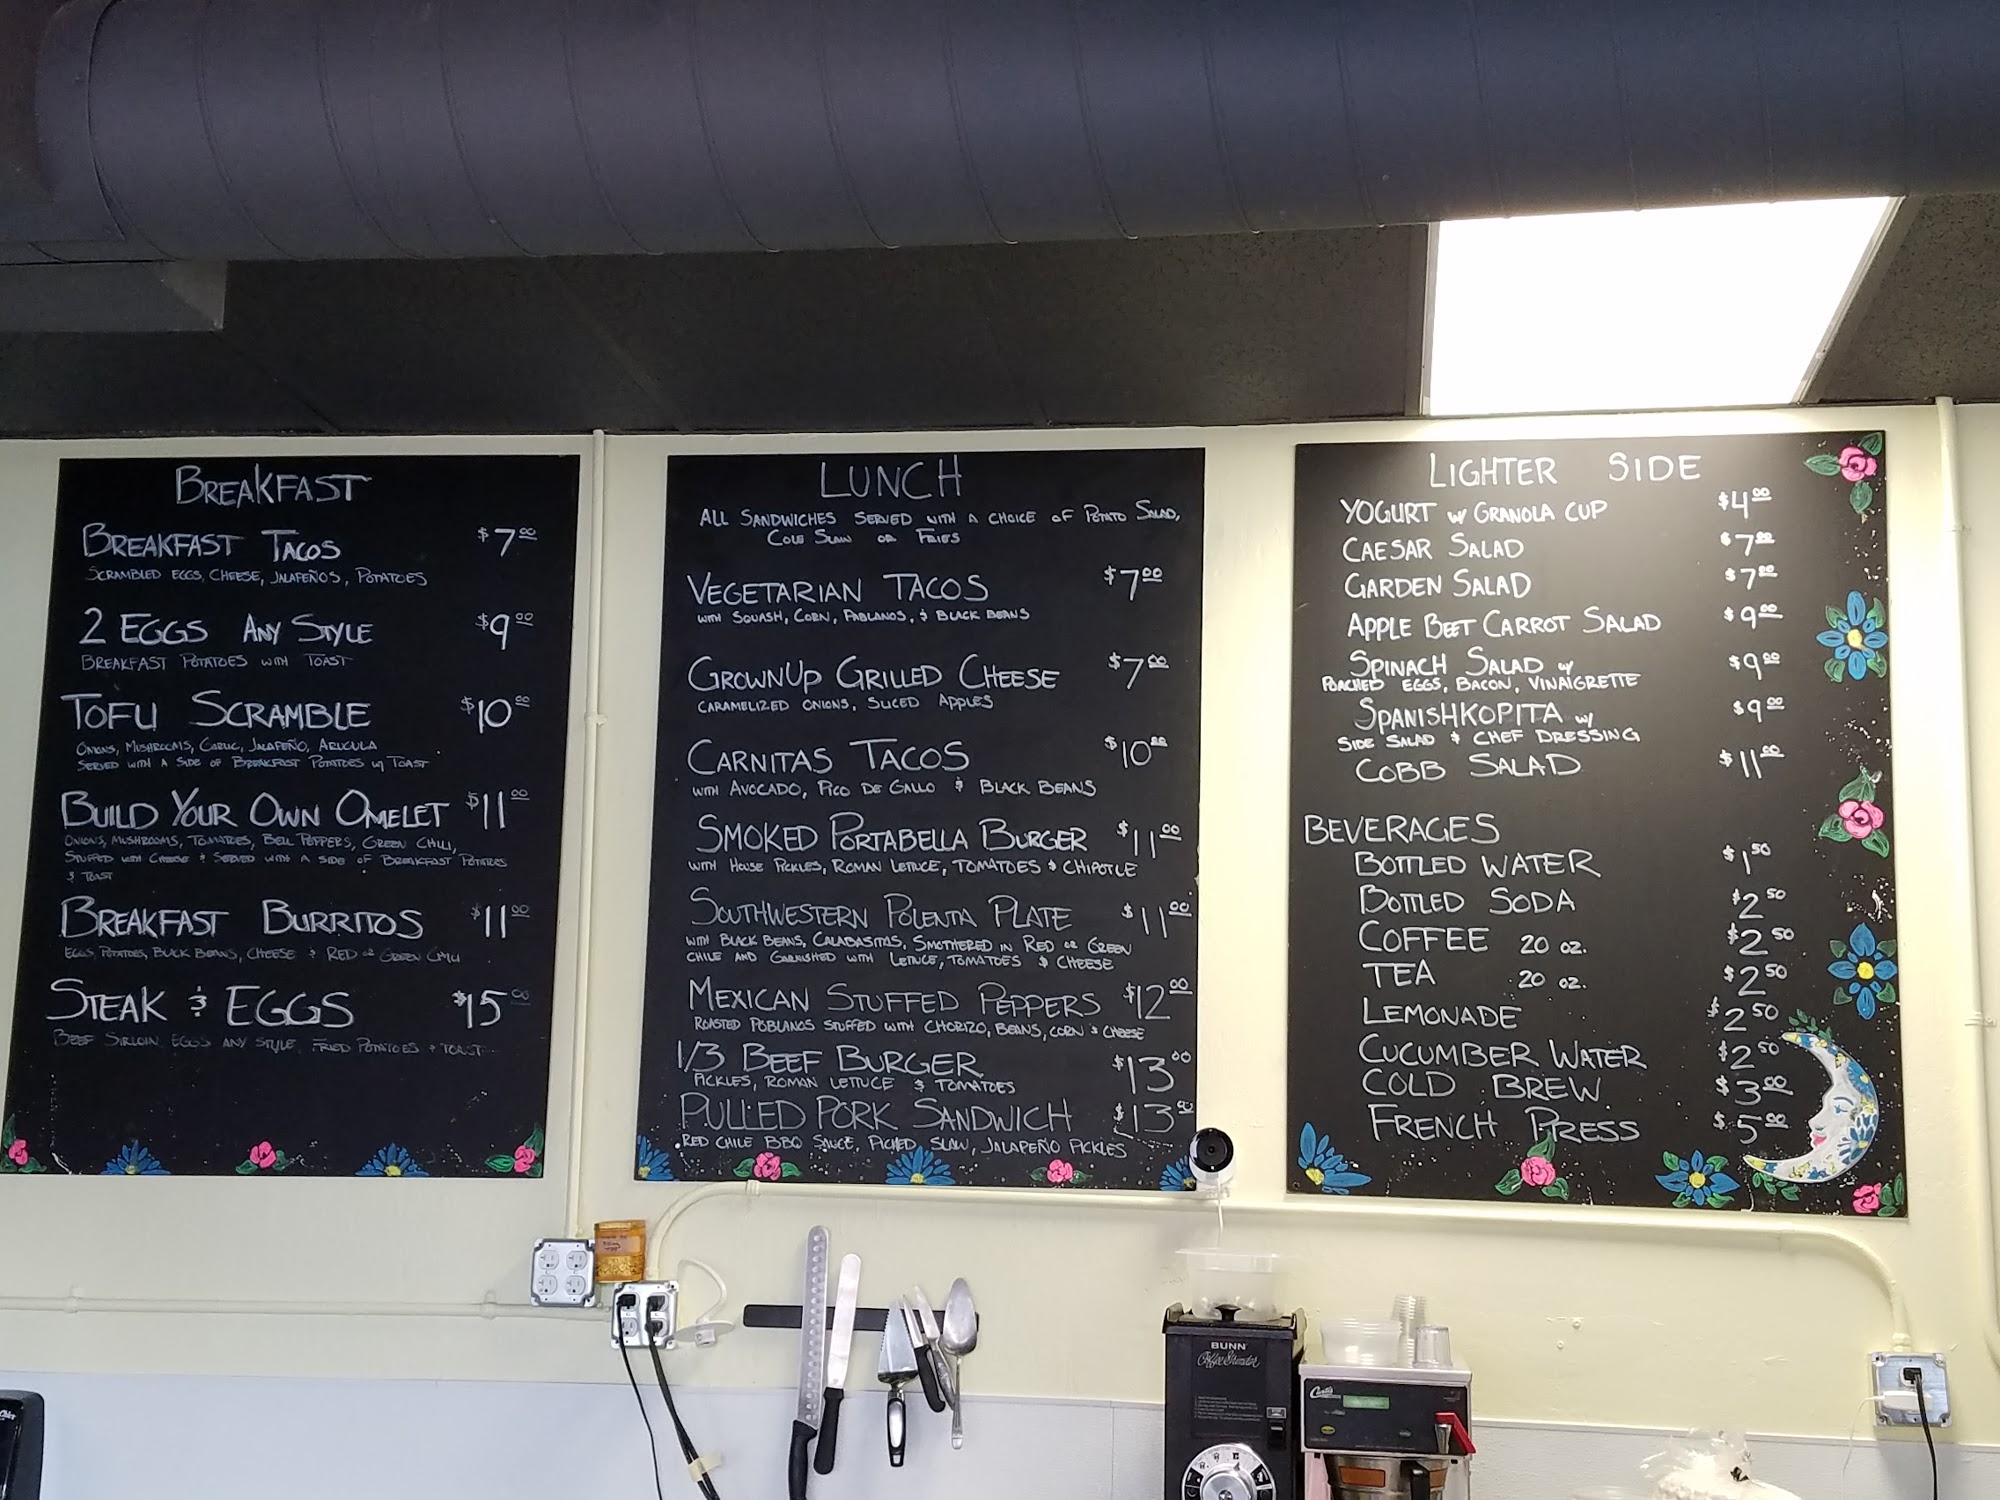 BREAKFAST
BREAKFAST TACOS $7.00
SCRAMBLED EGGS, CHEESE, JALAPEÑOS, POTATOES
2 EGGS ANY STYLE $9.00
BREAKFAST POTATOES WITH TOAST
TOFU SCRAMBLE $10.00
ONIONS, MUSHROOMS, GARLIC, JALAPEÑO, ARUGULA
SERVED WITH A SIDE OF BREAKFAST POTATOES W/ TOAST
BUILD YOUR OWN OMELET $11.00
ONIONS, MUSHROOMS, TOMATOES, BELL PEPPERS, GREEN CHILI,
STUFFED WITH CHEESE & SERVED WITH A SIDE OF BREAKFAST POTATOES
& TOAST
BREAKFAST BURRITOS $11.00
EGGS, POTATOES, BLACK BEANS, CHEESE & RED OR GREEN CHILI
STEAK & EGGS $15.00
BEEF SIRLOIN, EGGS ANY STYLE, FRIED POTATOES & TOAST
LUNCH
ALL SANDWICHES SERVED WITH A CHOICE OF POTATO SALAD,
COLE SLAW OR FRIES
VEGETARIAN TACOS $7.00
WITH SQUASH, CORN, PABLANOS, & BLACK BEANS
GROWNUP GRILLED CHEESE $7.00
CARAMELIZED ONIONS, SLICED APPLES
CARNITAS TACOS $10.00
WITH AVOCADO, PICO DE GALLO & BLACK BEANS
SMOKED PORTABELLA BURGER $11.00
WITH HOUSE PICKLES, ROMAN LETTUCE, TOMATOES & CHIPOTLE
SOUTHWESTERN POLENTA PLATE $11.00
WITH BLACK BEANS, CALABASITAS, SMOTHERED IN RED OR GREEN
CHILE AND GARNISHED WITH LETTUCE, TOMATOES & CHEESE
MEXICAN STUFFED PEPPERS $12.00
ROASTED POBLANOS STUFFED WITH CHORIZO, BEANS, CORN & CHEESE
1/3 BEEF BURGER $13.00
PICKLES, ROMAN LETTUCE & TOMATOES
PULLED PORK SANDWICH $13.00
RED CHILE BBQ SAUCE, PICKLED SLAW, JALAPEÑO PICKLES
LIGHTER SIDE
YOGURT W/ GRANOLA CUP $4.00
CAESAR SALAD $7.00
GARDEN SALAD $7.00
APPLE BEET CARROT SALAD $9.00
SPINACH SALAD W/ $9.00
POACHED EGGS, BACON, VINAIGRETTE
SPANISHKOPITA W/ $9.00
SIDE SALAD & CHEF DRESSING
COBB SALAD $11.00
BEVERAGES
BOTTLED WATER $1.50
BOTTLED SODA $2.50
COFFEE 20 OZ. $2.50
TEA 20 OZ. $2.50
LEMONADE $2.50
CUCUMBER WATER $2.50
COLD BREW $3.00
FRENCH PRESS $5.00
BUNN
Coffee Grinder
Curtis